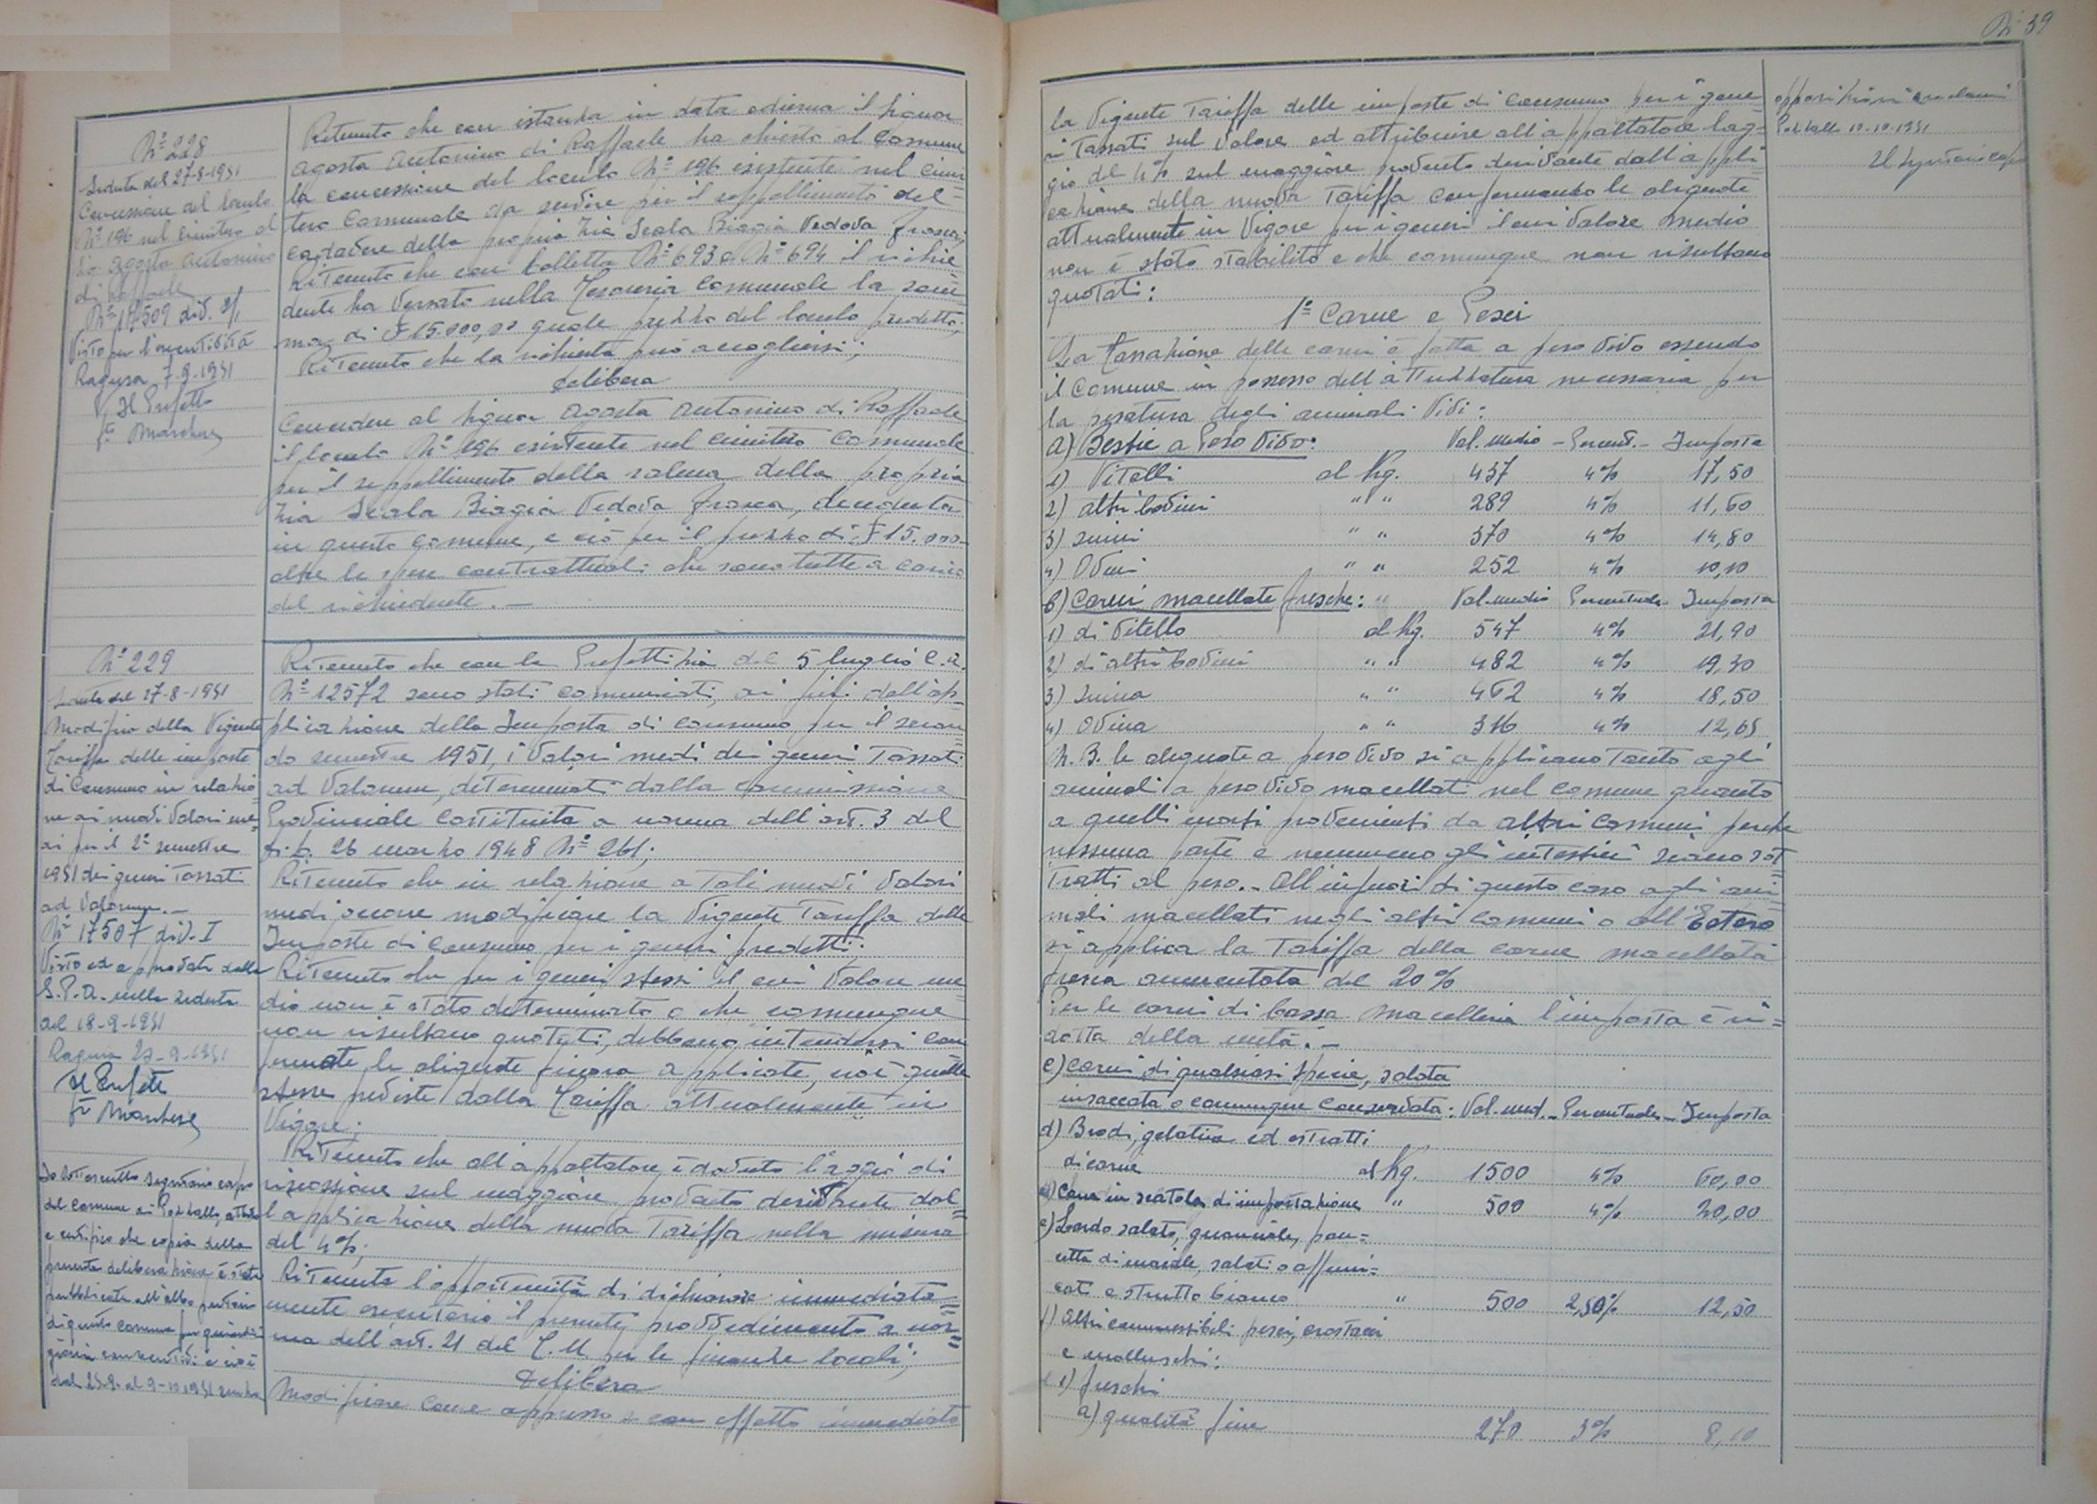 Nº 39
Nº 228
Seduta del 27-8-1951
Concessione del loculo
Nº 196 nel cimitero al
Sig. Agosta Antonino
di Raffaele
Nº 17509 div. 2/1
Visto per l'esecutibilità
Ragusa 7-9-1951
p. Il Prefetto
fto Marchese
Ritenuto che con istanza in data odierna il signor
Agosta Antonino di Raffaele ha chiesto al Comune
la concessione del loculo Nº 196 esistente nel cimi=
tero Comunale da servire per il seppellimento del=
cadavere della propria zia Scala Biagia Vedova
Ritenuto che con bolletta Nº 693 e Nº 694 il richie
dente ha versato nella Tesoreria Comunale la som=
ma di £ 15.000,00 quale prezzo del loculo predetto;
Ritenuto che la richiesta può accogliersi;
delibera
Concedere al signor Agosta Antonino di Raffaele
il loculo Nº 196 esistente nel cimitero Comunale
per il seppellimento della salma della propria
zia Scala Biagia Vedova, deceduta
in questo Comune, e ciò per il prezzo di £ 15.000
oltre le spese contrattuali che sono tutte a carico
del richiedente. —
Nº 229
Seduta del 27-8-1951
Modifica della Vigente
Tariffa delle imposte
di Consumo in relazio=
ne ai nuovi Valori me=
di per il 2º semestre
1951 dei generi Tassati
ad Valorem. —
Nº 17507 div. I
Visto ed approvato dalla
G.P.A. nella seduta
del 18-9-1951
Ragusa 27-9-1951
Il Prefetto
fto Marchese
Io sottoscritto Segretario capo
del Comune di Pozzallo, attesto
e certifico che copia della
presente deliberazione è stata
pubblicata all'albo pretorio
di questo Comune per quindici
giorni consecutivi e cioè
dal 25-9- al 9-10-1951 senza
Ritenuto che con la Prefettizia del 5 luglio c.a.
Nº 12572 sono stati comunicati, ai fini dell'ap=
plicazione della Imposta di consumo per il secon=
do semestre 1951, i Valori medi dei generi Tassati
ad Valorem, determinati dalla Commissione
Provinciale costituita a norma dell'art. 3 del
26 marzo 1948 Nº 261;
Ritenuto che in relazione a tali nuovi Valori
medi occorre modificare la Vigente Tariffa delle
Imposte di consumo per i generi predetti:
Ritenuto che per i generi stessi il cui Valore me=
dio non è stato determinato o che comunque
non risultano quotati, debbano intendersi con
fermate le aliquote finora applicate, cioè quelle
stesse previste dalla Tariffa attualmente in
Vigore;
Ritenuto che all'appaltatore è dovuto l'aggio di
riscossione sul maggiore provento derivante dal=
l'applicazione della nuova Tariffa nella misura
del 4%;
Ritenuto l'opportunità di dichiarare immediata=
mente esecutorio il presente provvedimento a nor=
ma dell'art. 21 del T.U. per le finanze locali;
delibera
Modificare come appresso e con effetto immediato
la Vigente Tariffa delle imposte di consumo per i gene
ri Tassati sul Valore ed attribuire all'appaltatore l'ag=
gio del 4% sul maggiore provento derivante dall'appli
cazione della nuova Tariffa confermando le aliquote
attualmente in Vigore per i generi il cui Valore medio
non è stato stabilito e che comunque non risultano
quotati:
1º Carne e Pesci
La Tassazione delle carni è fatta a peso vivo essendo
il Comune in possesso dell'attrezzatura necessaria per
la pesatura degli animali vivi:
a) Bestie a Peso Vivo: Val. medio - Percent. - Imposta
1) Vitelli al Kg. 437 4% 17,50
2) altri bovini " " 289 4% 11,60
3) suini " " 370 4% 14,80
4) Ovini " " 252 4% 10,10
b) Carni macellate fresche: " Val. medio Percentuale Imposta
1) di Vitello al Kg. 547 4% 21,90
2) di altri bovini " " 482 4% 19,30
3) suina " " 462 4% 18,50
4) Ovina " " 316 4% 12,65
N.B. le aliquote a peso Vivo si applicano tanto agli
animali a peso Vivo macellati nel Comune quanto
a quelli morti provenienti da altri Comuni perchè
nessuna parte e nemmeno gli intestini siano sot
tratti al peso. - All'infuori di questo caso agli ani
mali macellati negli altri Comuni o all'Estero
si applica la Tariffa della carne macellata
fresca aumentata del 20%
Per le carni di bassa macelleria l'imposta è ri=
dotta della metà. —
c) Carni di qualsiasi specie, salata
insaccata o comunque conservata: Val. med. - Percentuale - Imposta
d) Brodi, gelatina ed estratti
di carne al Kg. 1500 4% 60,00
Carne in scatola di importazione " 500 4% 20,00
e) Lardo salato, guanciale, pan=
cetta di maiale, salati o affumi=
cati e strutto bianco " 500 2,50% 12,50
f) Altri commestibili pesci, crostacei
e molluschi:
1) freschi
a) qualità fine 270 3% 8,10
opposizioni o reclami
Pozzallo 10-10-1951
Il Segretario capo